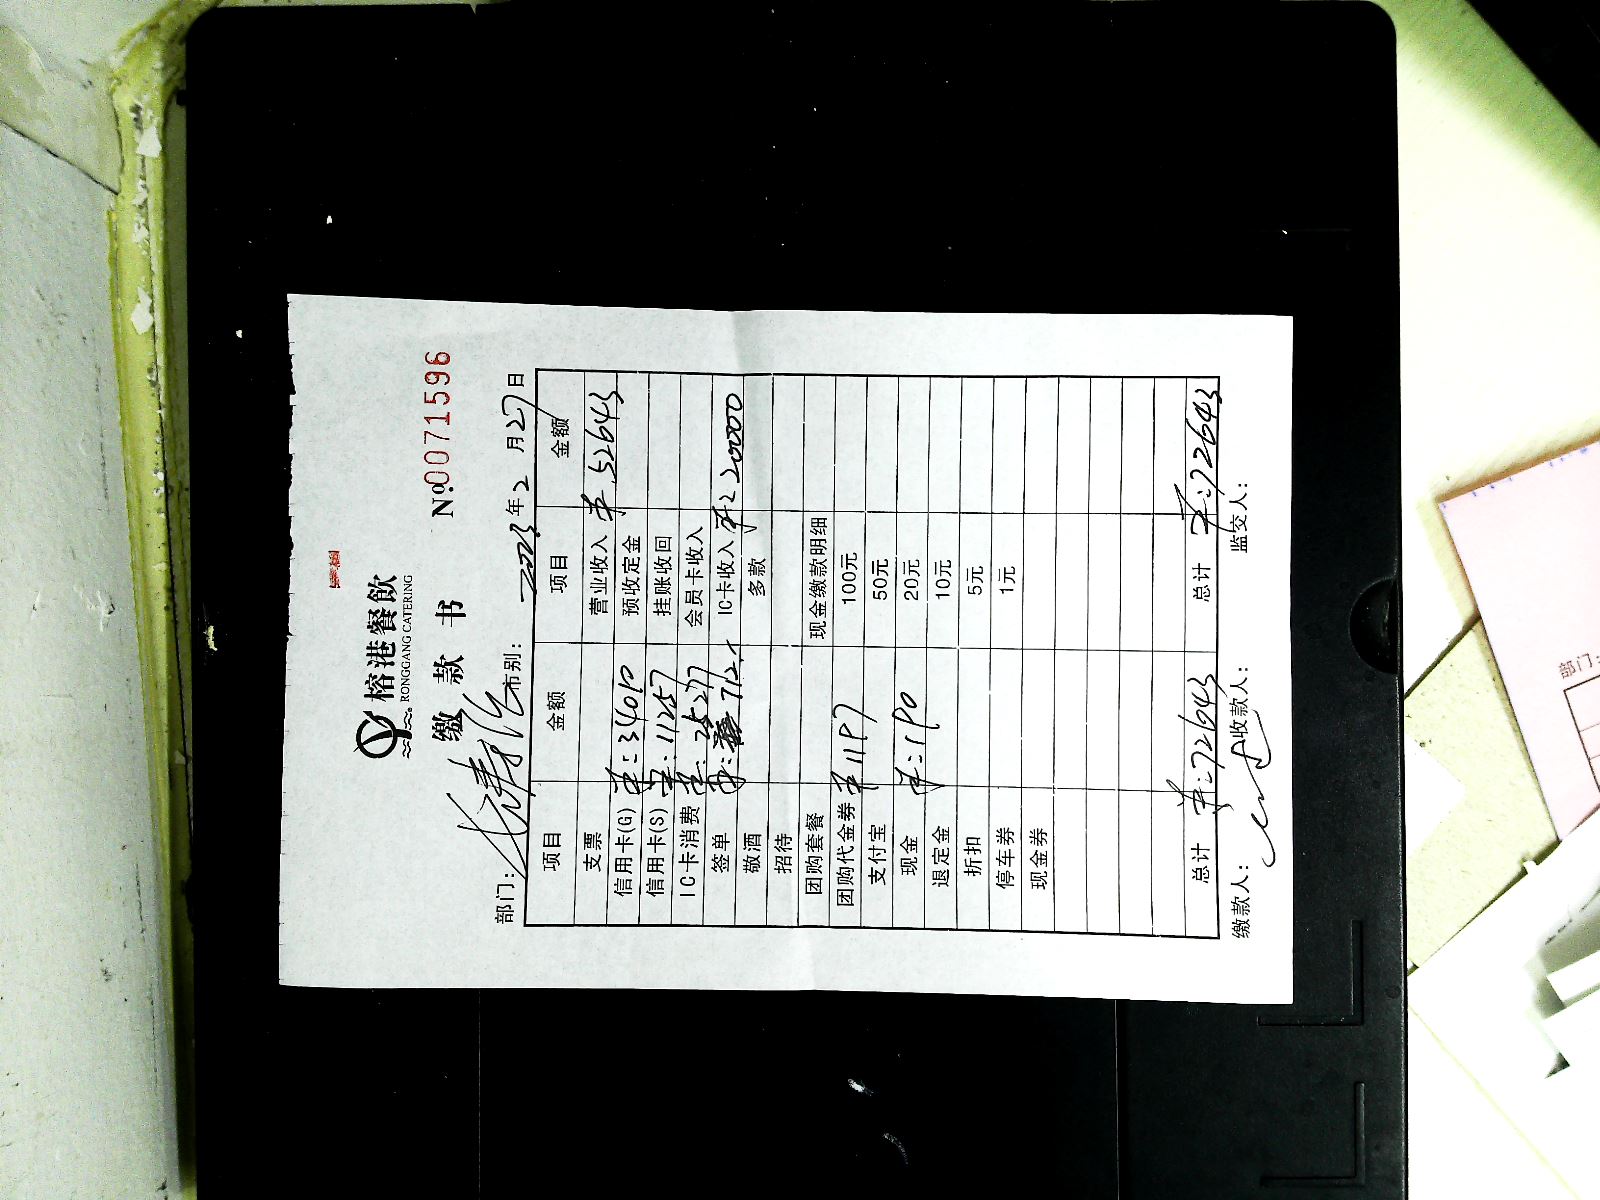 榕港餐飲
RONGGANG CATERING
缴 款 书
№0071596
部门: 市别: 2023年2月27日
项目 金额 项目 金额
支票 营业收入 52643
信用卡(G) 34010 预收定金
信用卡(S) 11257 挂账收回
IC卡消费 25277 会员卡收入
签单 712. IC卡收入 20000
敬酒 多款
招待
团购套餐 现金缴款明细
团购代金券 1197 100元
支付宝 50元
现金 190 20元
退定金 10元
折扣 5元
停车券 1元
现金券
总计 72643 总计 72643
缴款人: 收款人: 监交人:
部门: